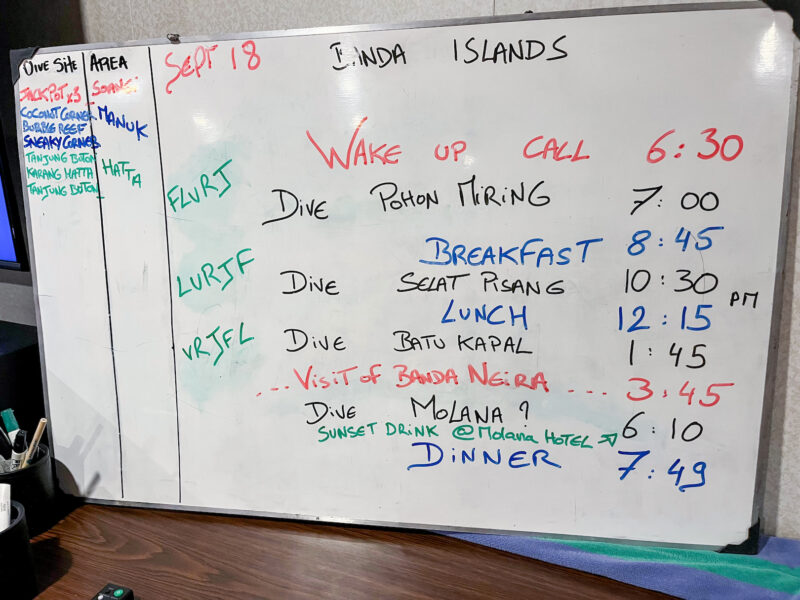 Dive Site AREA SEPT 18 BANDA ISLANDS
JACKPOT x3
COCONUT CORNER MANUK
BUBBLE REEF
SNEAKY CORNER
TANJUNG BUTON
KARANG HATTA HATTA
TANJUNG BUTON
WAKE UP CALL 6:30
FLVRJ DIVE POHON MIRING 7:00
BREAKFAST 8:45
LVRJF DIVE SELAT PISANG 10:30
LUNCH 12:15 PM
VRJFL DIVE BATU KAPAL 1:45
...VISIT OF BANDA NEIRA... 3:45
DIVE MOLANA? 6:10
SUNSET DRINK @MOLANA HOTEL
DINNER 7:49